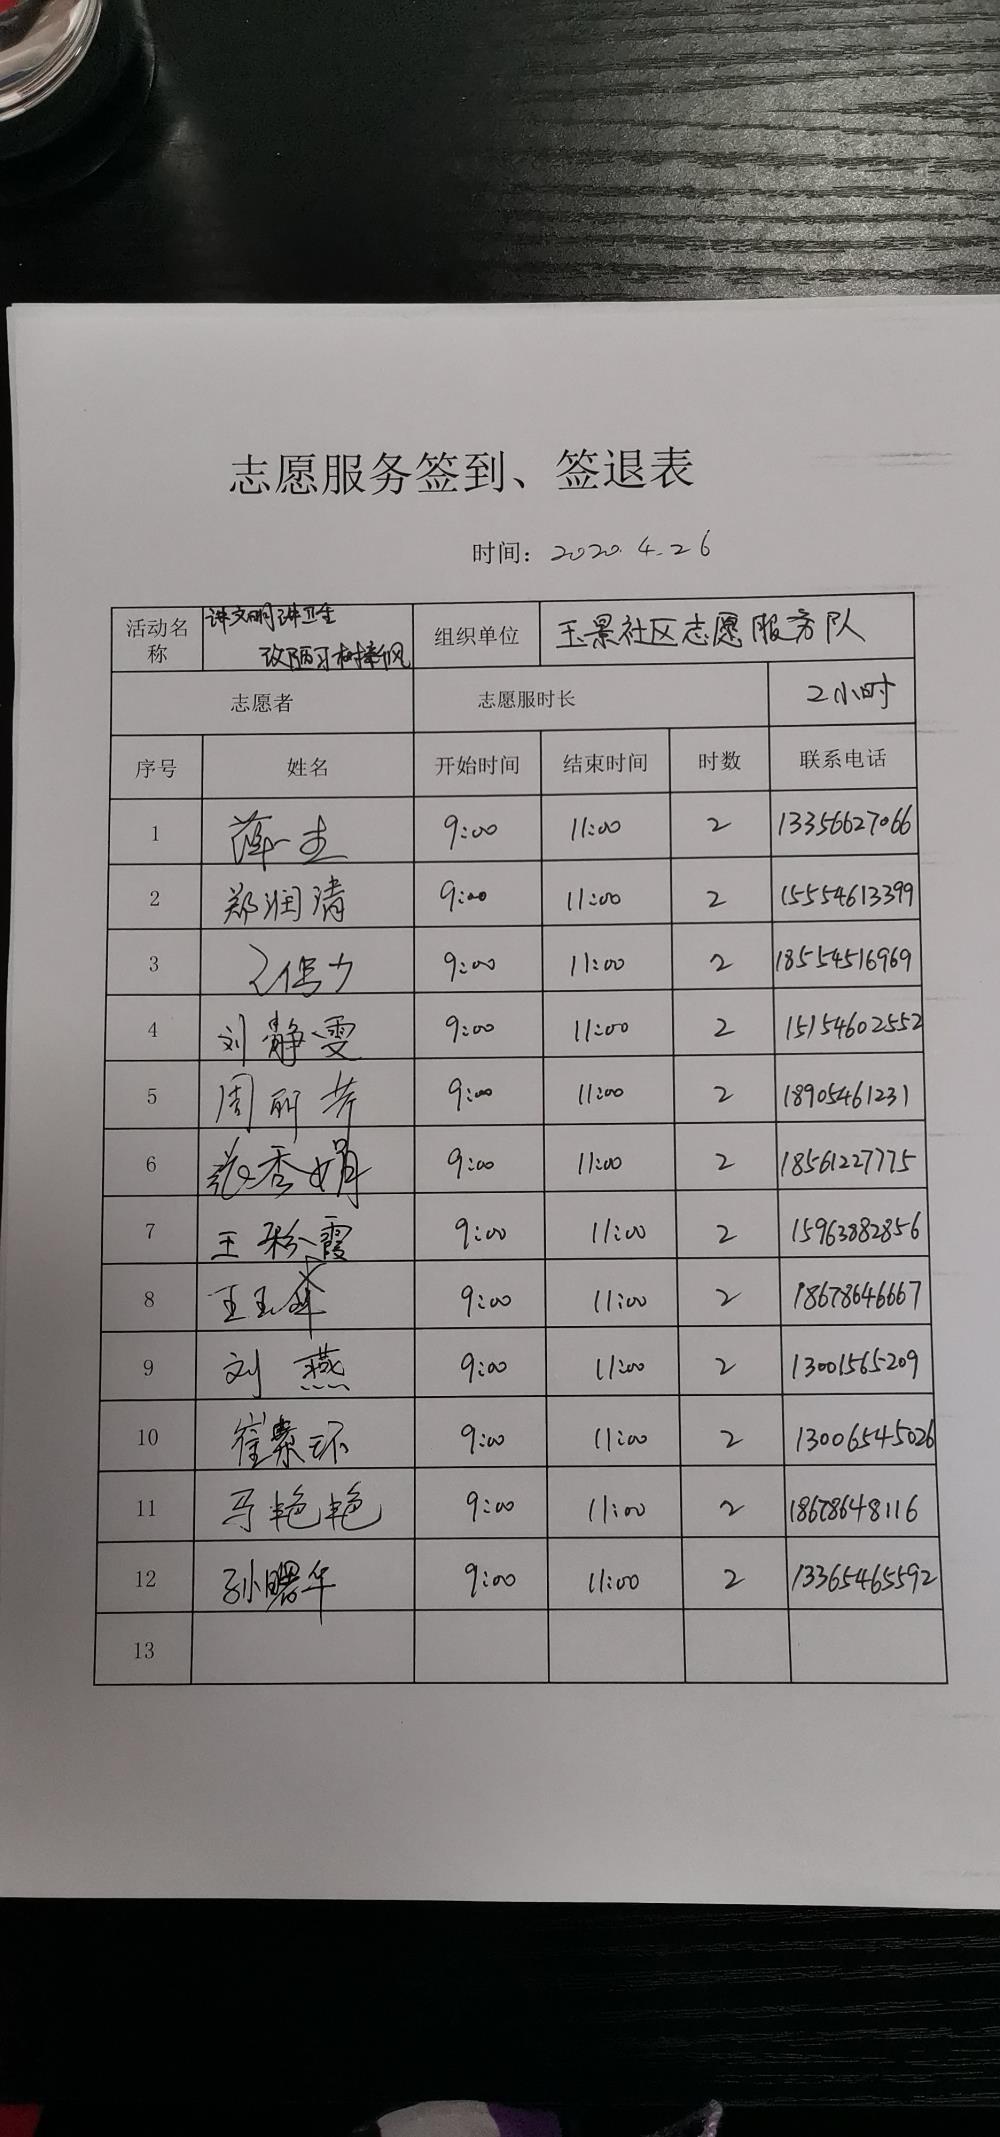 志愿服务签到、签退表
时间：2020.4.26
活动名称 讲文明讲卫生 改陋习树新风 组织单位 玉景社区志愿服务队
志愿者 志愿服时长 2小时
序号 姓名 开始时间 结束时间 时数 联系电话
1 薛一 9:00 11:00 2 13356627066
2 郑润清 9:00 11:00 2 15554613399
3 9:00 11:00 2 18554516969
4 刘静雯 9:00 11:00 2 15154602552
5 周丽芳 9:00 11:00 2 18905461231
6 张秀娟 9:00 11:00 2 18561227775
7 王彩霞 9:00 11:00 2 15963882856
8 王玉 9:00 11:00 2 18678646667
9 刘燕 9:00 11:00 2 13001565209
10 崔素环 9:00 11:00 2 13006545026
11 马艳艳 9:00 11:00 2 18678648116
12 孙曙华 9:00 11:00 2 13365465592
13